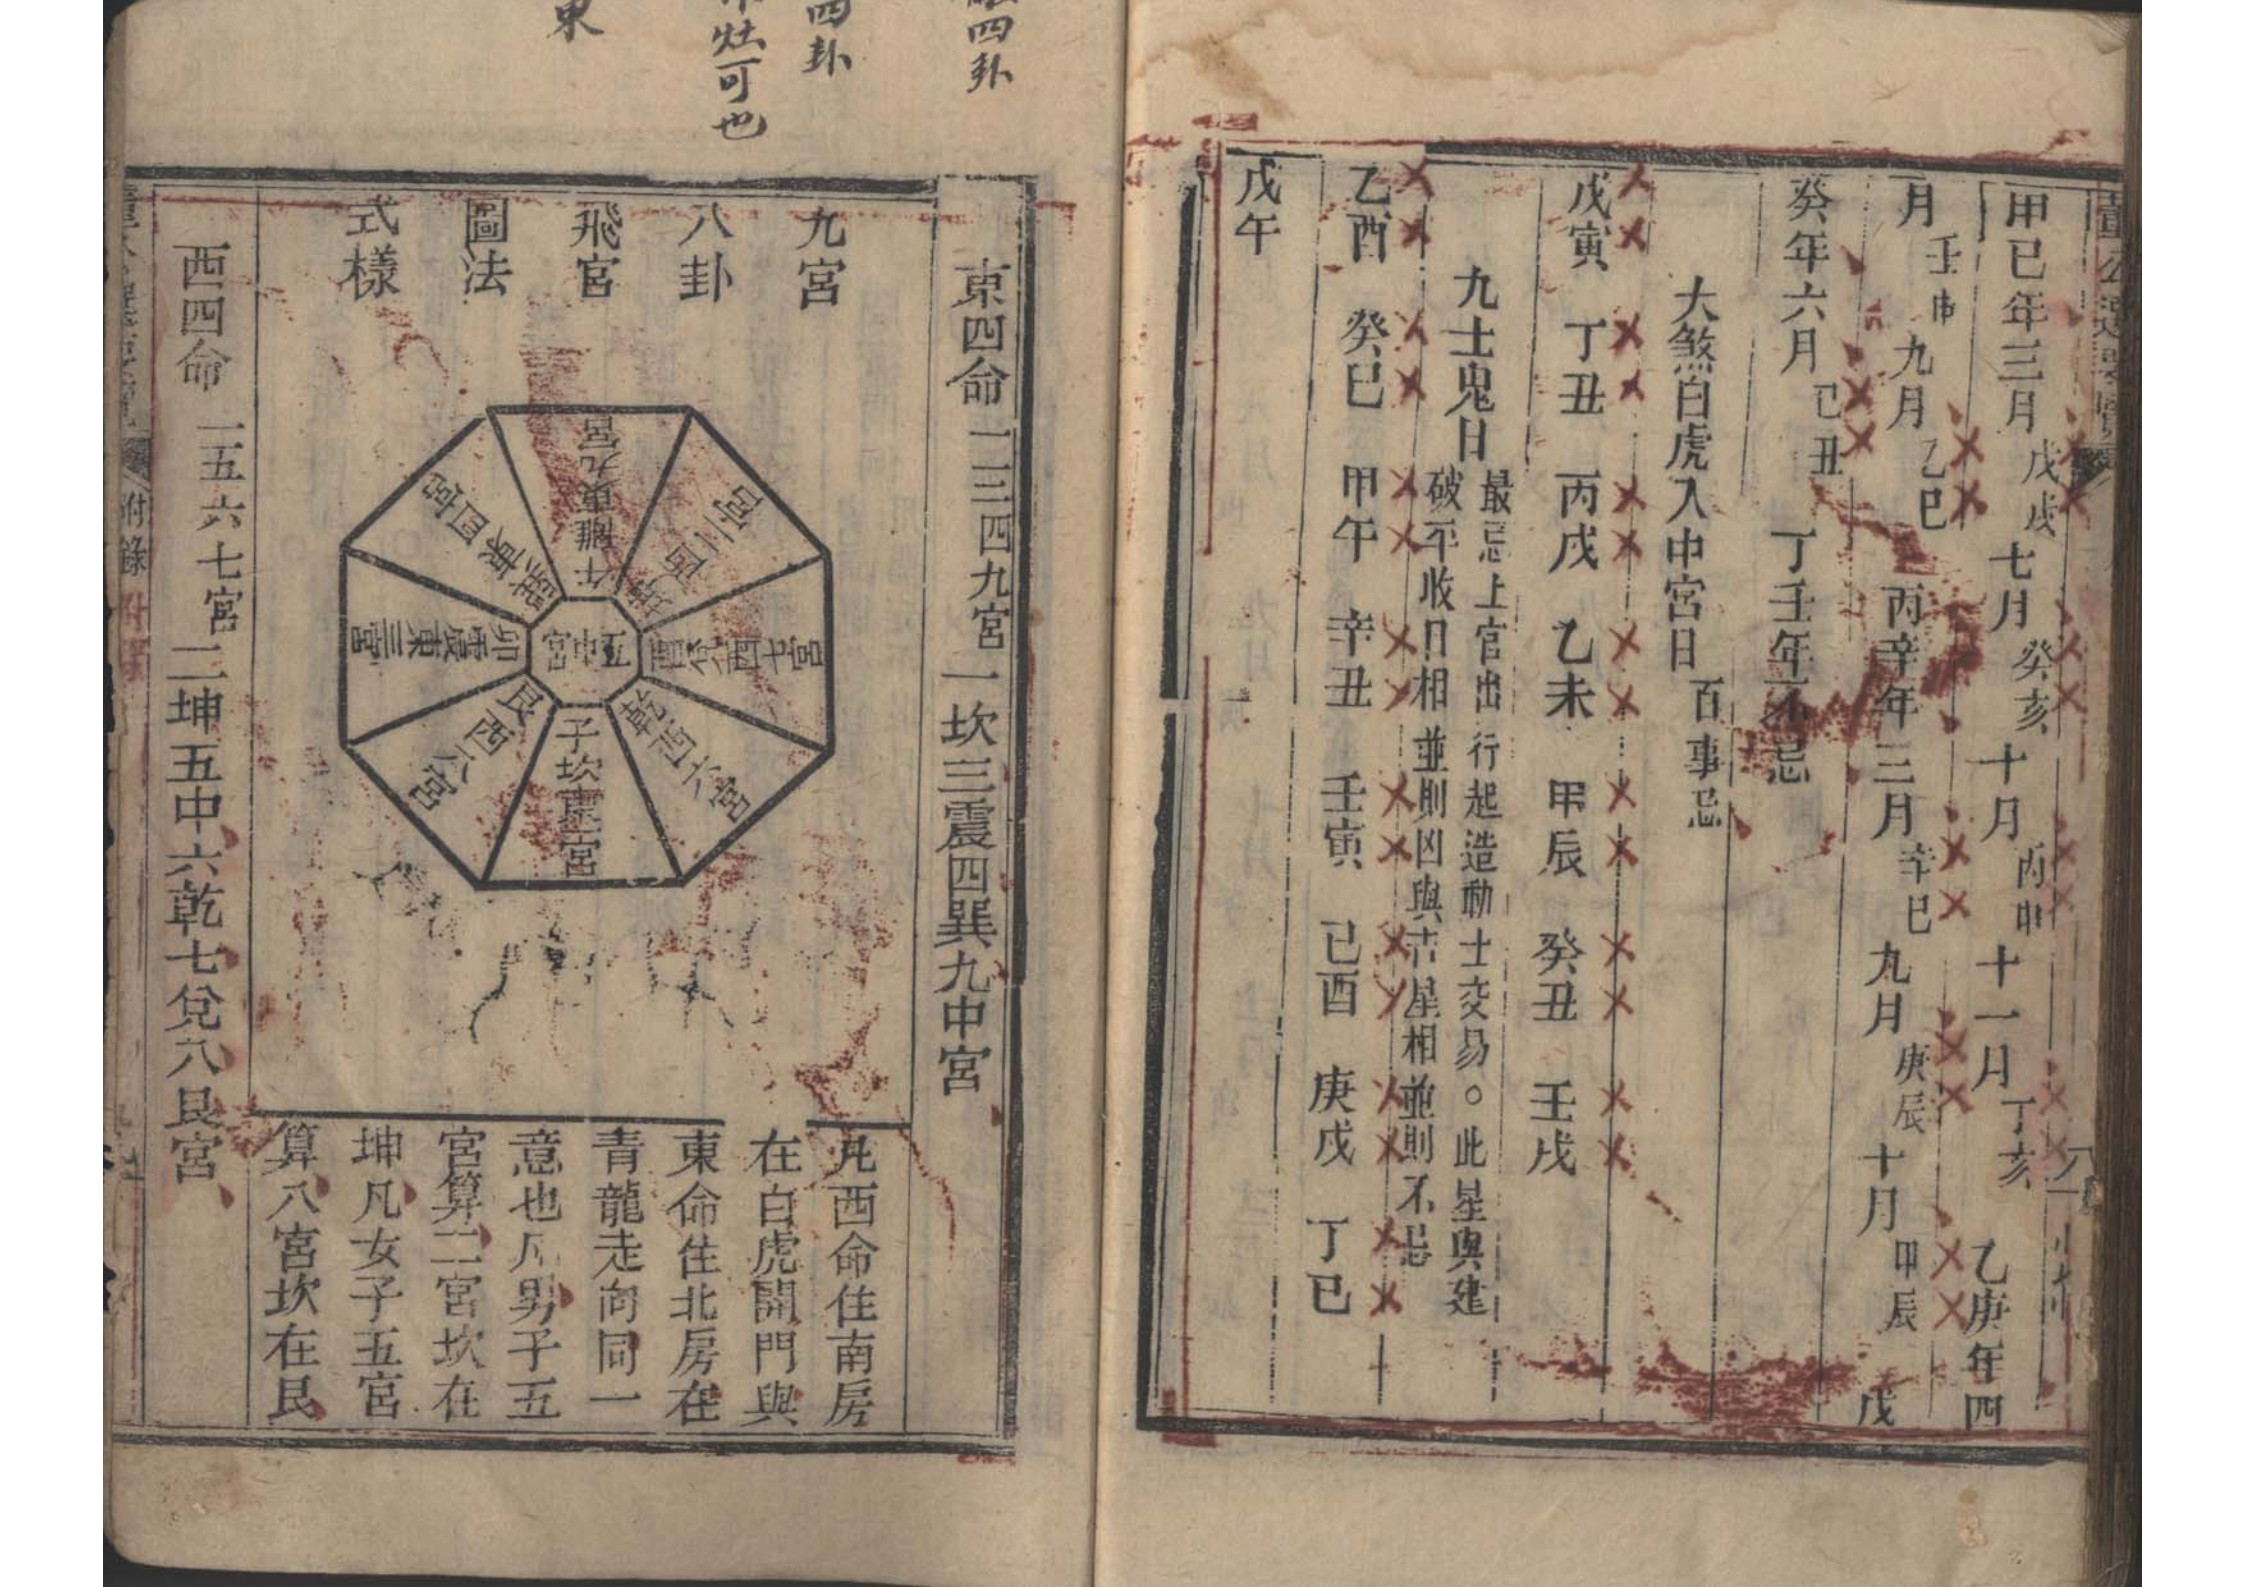 甲已年三月 戊戌 七月 癸亥 十月 丙申 十一月 丁亥 乙庚年四
月 壬申 九月 乙巳 丙辛年三月 辛巳 九月 庚辰 十月 甲辰 戊
癸年六月 己丑 丁壬年不忌
大煞白虎入中宮日 百事忌
戊寅 丁丑 丙戌 乙未 甲辰 癸丑 壬戌
九土鬼日 最忌上官出行起造動土交易。此星與建
破平收日相並則凶與吉星相並則不忌
乙酉 癸巳 甲午 辛丑 壬寅 己酉 庚戌 丁巳
戊午
四卦
四卦
灶可也
東
東四命 一三四九宮 一坎三震四巽九中宮
九宮
八卦
飛宮
圖法
式樣
午離東九宮
坤西二宮
酉兌西七宮
乾西六宮
子坎東一宮
艮西八宮
卯震東三宮
巽東四宮
五中宮
凡西命住南房
在白虎開門與
東命住北房在
青龍走向同一
意也凡男子五
宮算二宮坎在
坤凡女子五宮
算八宮坎在艮
西四命 二五六七宮 二坤五中六乾七兌八艮宮
附錄